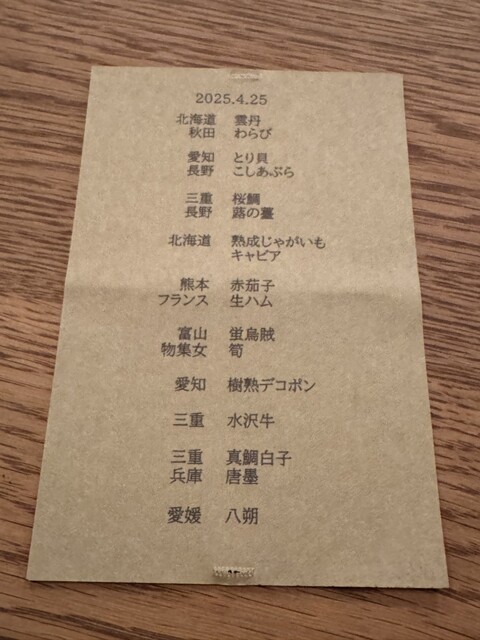 2025.4.25
北海道 雲丹
秋田 わらび
愛知 とり貝
長野 こしあぶら
三重 桜鯛
長野 蕗の薹
北海道 熟成じゃがいも
キャビア
熊本 赤茄子
フランス 生ハム
富山 蛍烏賊
物集女 筍
愛知 樹熟デコポン
三重 水沢牛
三重 真鯛白子
兵庫 唐墨
愛媛 八朔